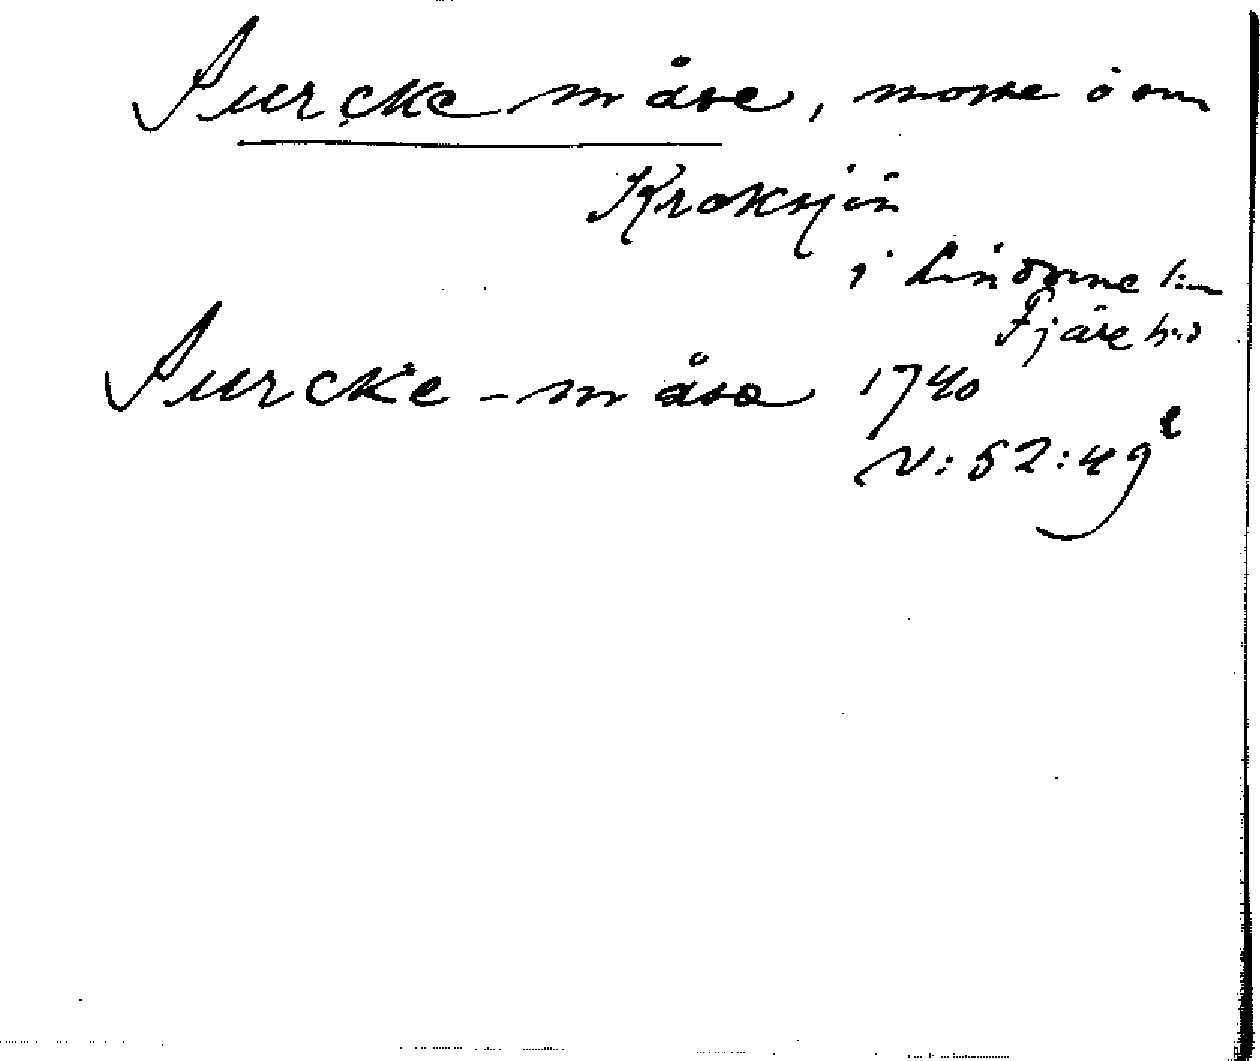 Surcke måse, mosse ö om
Kroksjön
i Lindome sn
Fjäre hd
Surcke-måsa 1740
N:52:49